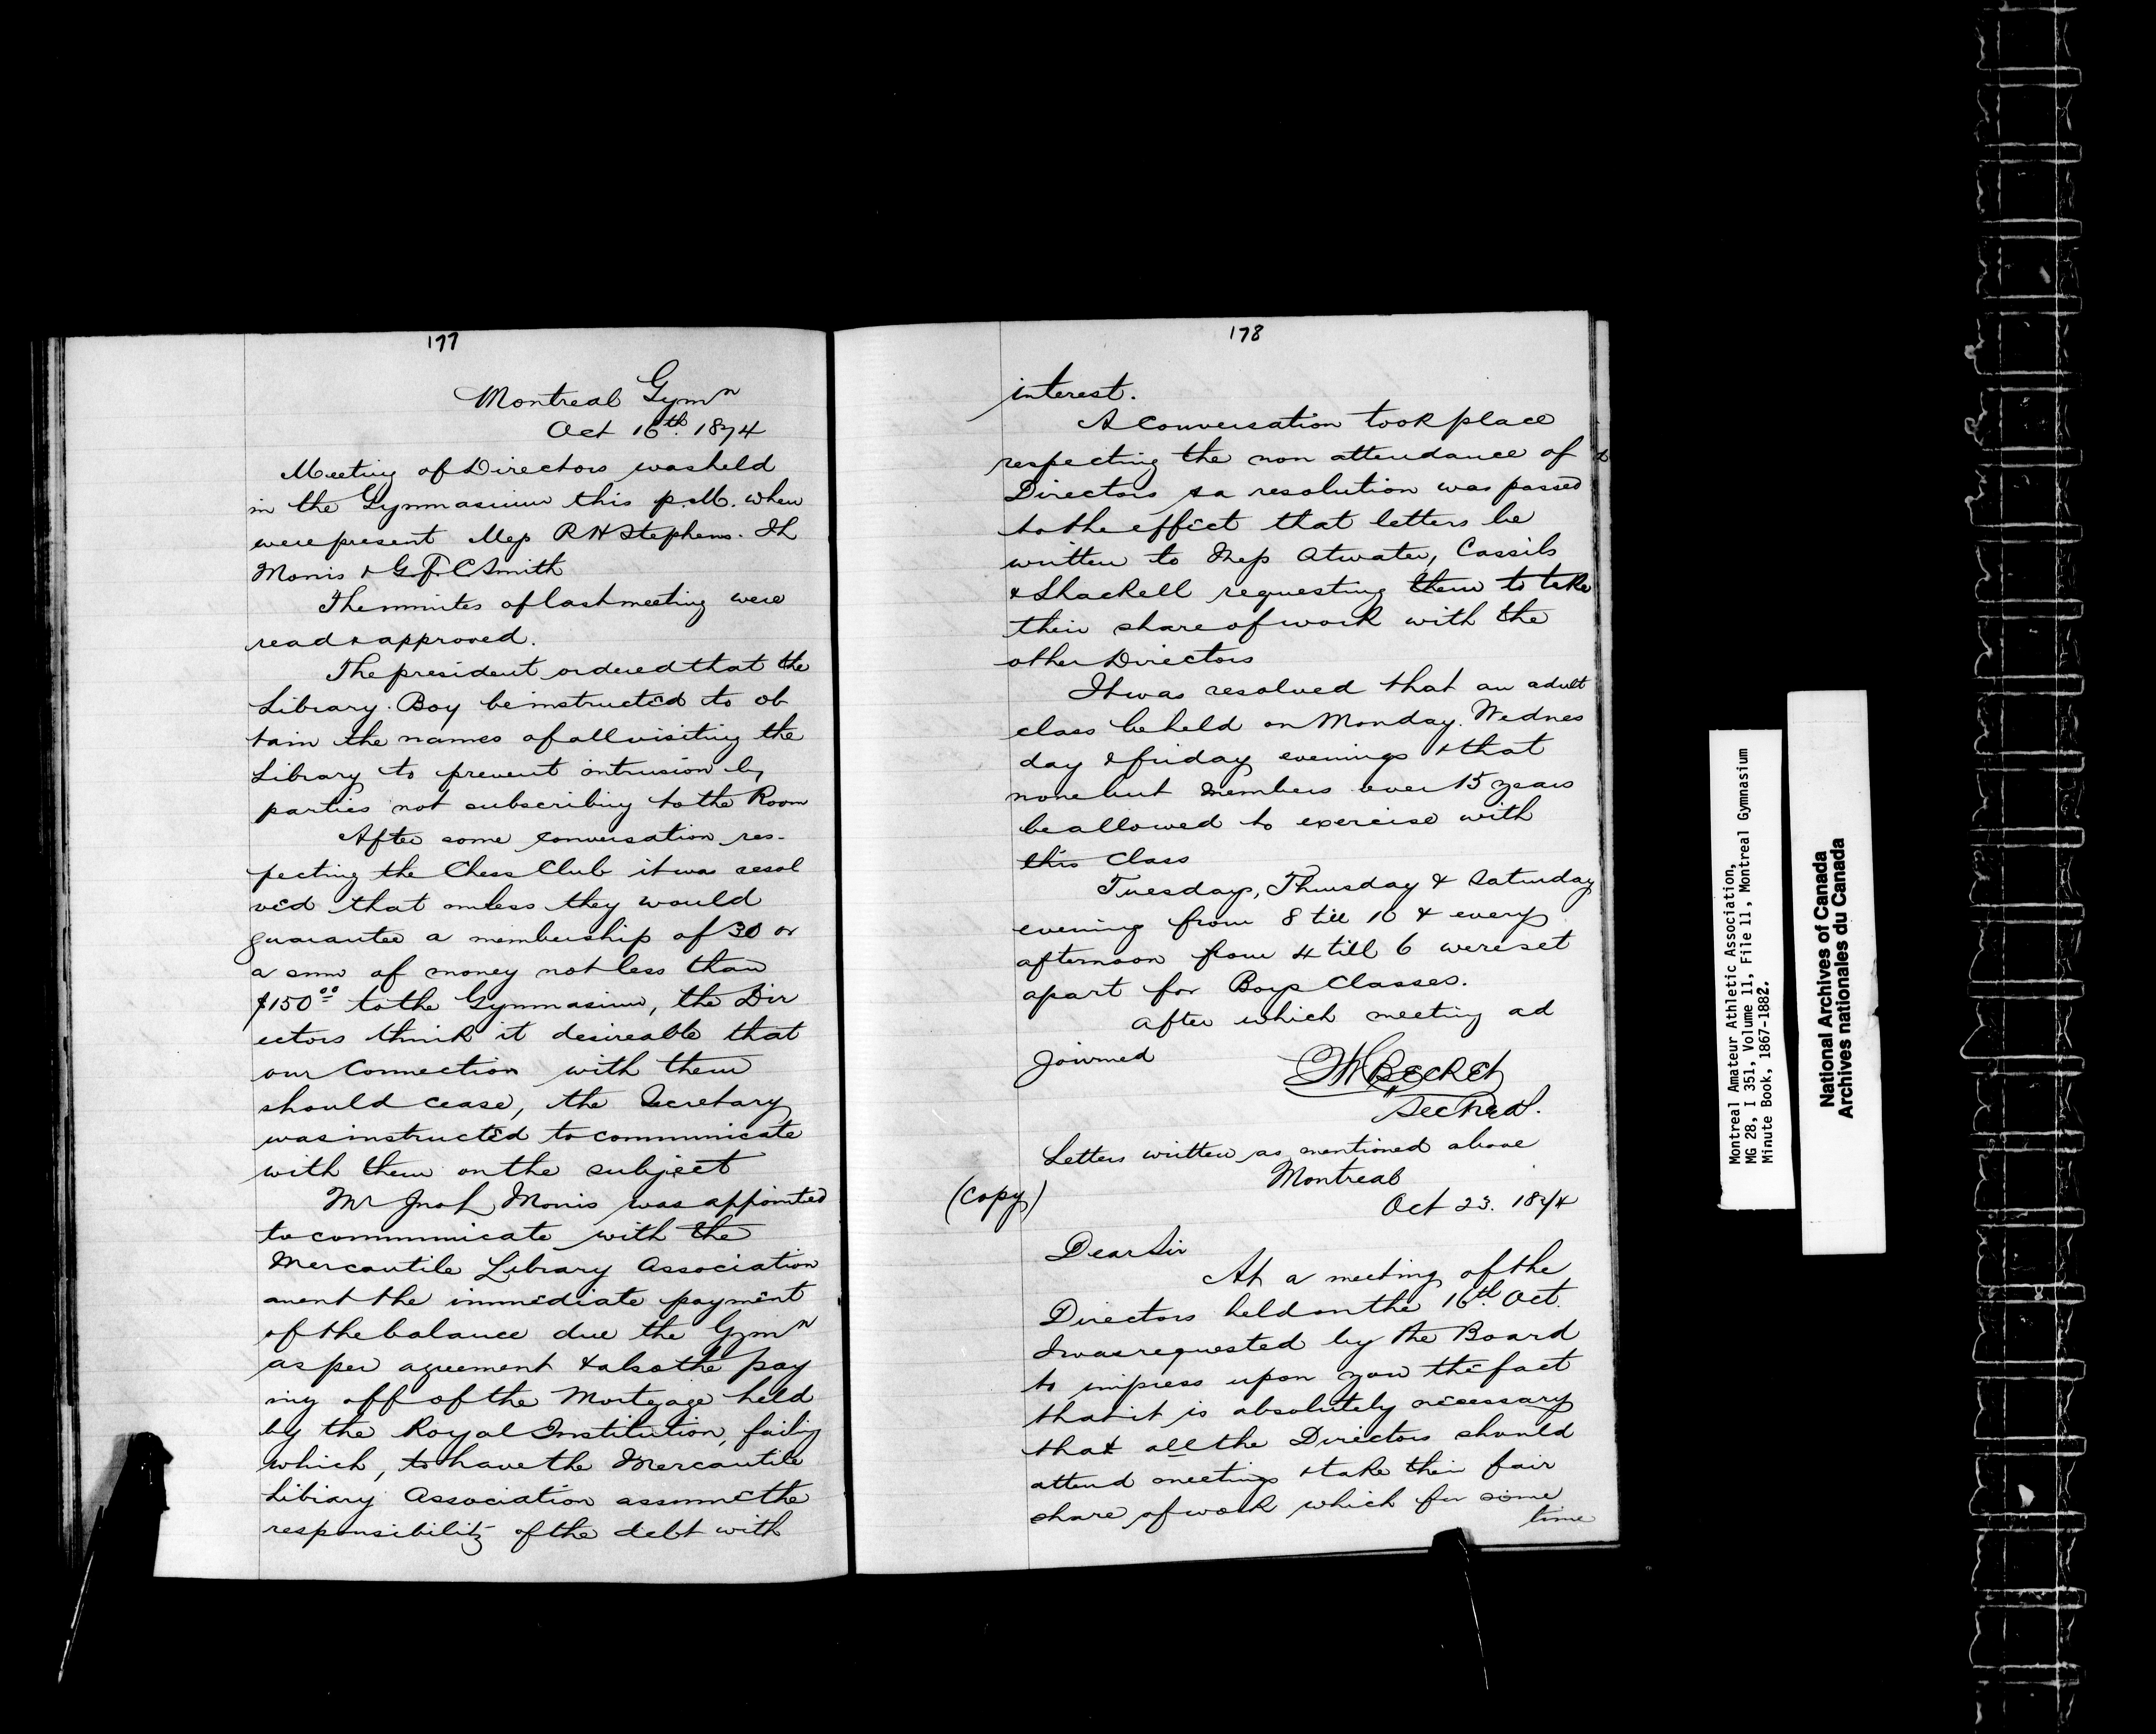 177
Montreal Gymn
Oct 16th. 1874
Meeting of Directors was held
in the Gymnasium this p.M. when
were present Mess R H Stephens.
Morris & G F C Smith
The minutes of last meeting were
read & approved.
The president ordered that the
Library Boy be instructed to ob
tain the names of all visiting the
Library to prevent intrusion by
parties not subscribing to the Room
After some conversation res-
pecting the Chess Club it was resol
ved that unless they would
guarantee a membership of 30 or
a sum of money not less than
$150.00 to the Gymnasium, the Dir
ectors think it desireable that
our Connection with them
should cease, the Secretary
was instructed to communicate
with them on the subject
Mr Jno L Morris was appointed
to communicate with the
Mercantile Library Association
anent the immediate payment
of the balance due the Gymn
as per agreement & also the pay
ing off of the Mortgage held
by the Royal Institution, failing
which, to have the Mercantile
Library Association assume the
responsibility of the debt with
178
interest.
A Conversation took place
respecting the non attendance of
Directors & a resolution was passed
to the effect that letters be
written to Mess Atwater, Cassils
& Shackell requesting them to take
their share of work with the
other Directors
It was resolved that an adult
class be held on Monday. Wednes
day & friday evenings & that
none but members over 15 years
be allowed to exercise with
this Class
Tuesdays, Thursday & Saturday
evening from 8 till 10 & every
afternoon from 4 till 6 were set
apart for Boys Classes.
After which meeting ad
journed
Becket
Letters written as mentioned above
Montreal
(Copy)
Oct 23. 1874
Dear Sir
At a meeting of the
Directors held on the 16th Oct.
I was requested by the Board
to impress upon you the fact
that it is absolutely necessary
that all the Directors should
attend meetings & take their fair
share of work which for some
time
Montreal Amateur Athletic Association,
MG 28, I 351, Volume 11, File 11, Montreal Gymnasium
Minute Book, 1867-1882.
National Archives of Canada
Archives nationales du Canada